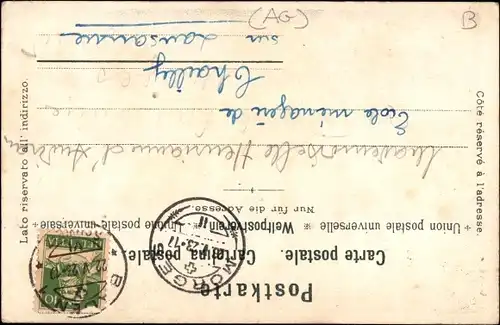 (AG)
B
Postkarte
Carte postale. Cartolina postale.
* Union postale universelle * Weltpostverein * Unione postale universale *
Nur für die Adresse.
Côté réservé à l'adresse.
Lato riservato all' indirizzo.
Mademoiselle
École ménagère de
Chailly
sur Lausanne
MORGES
HELVETIA
10